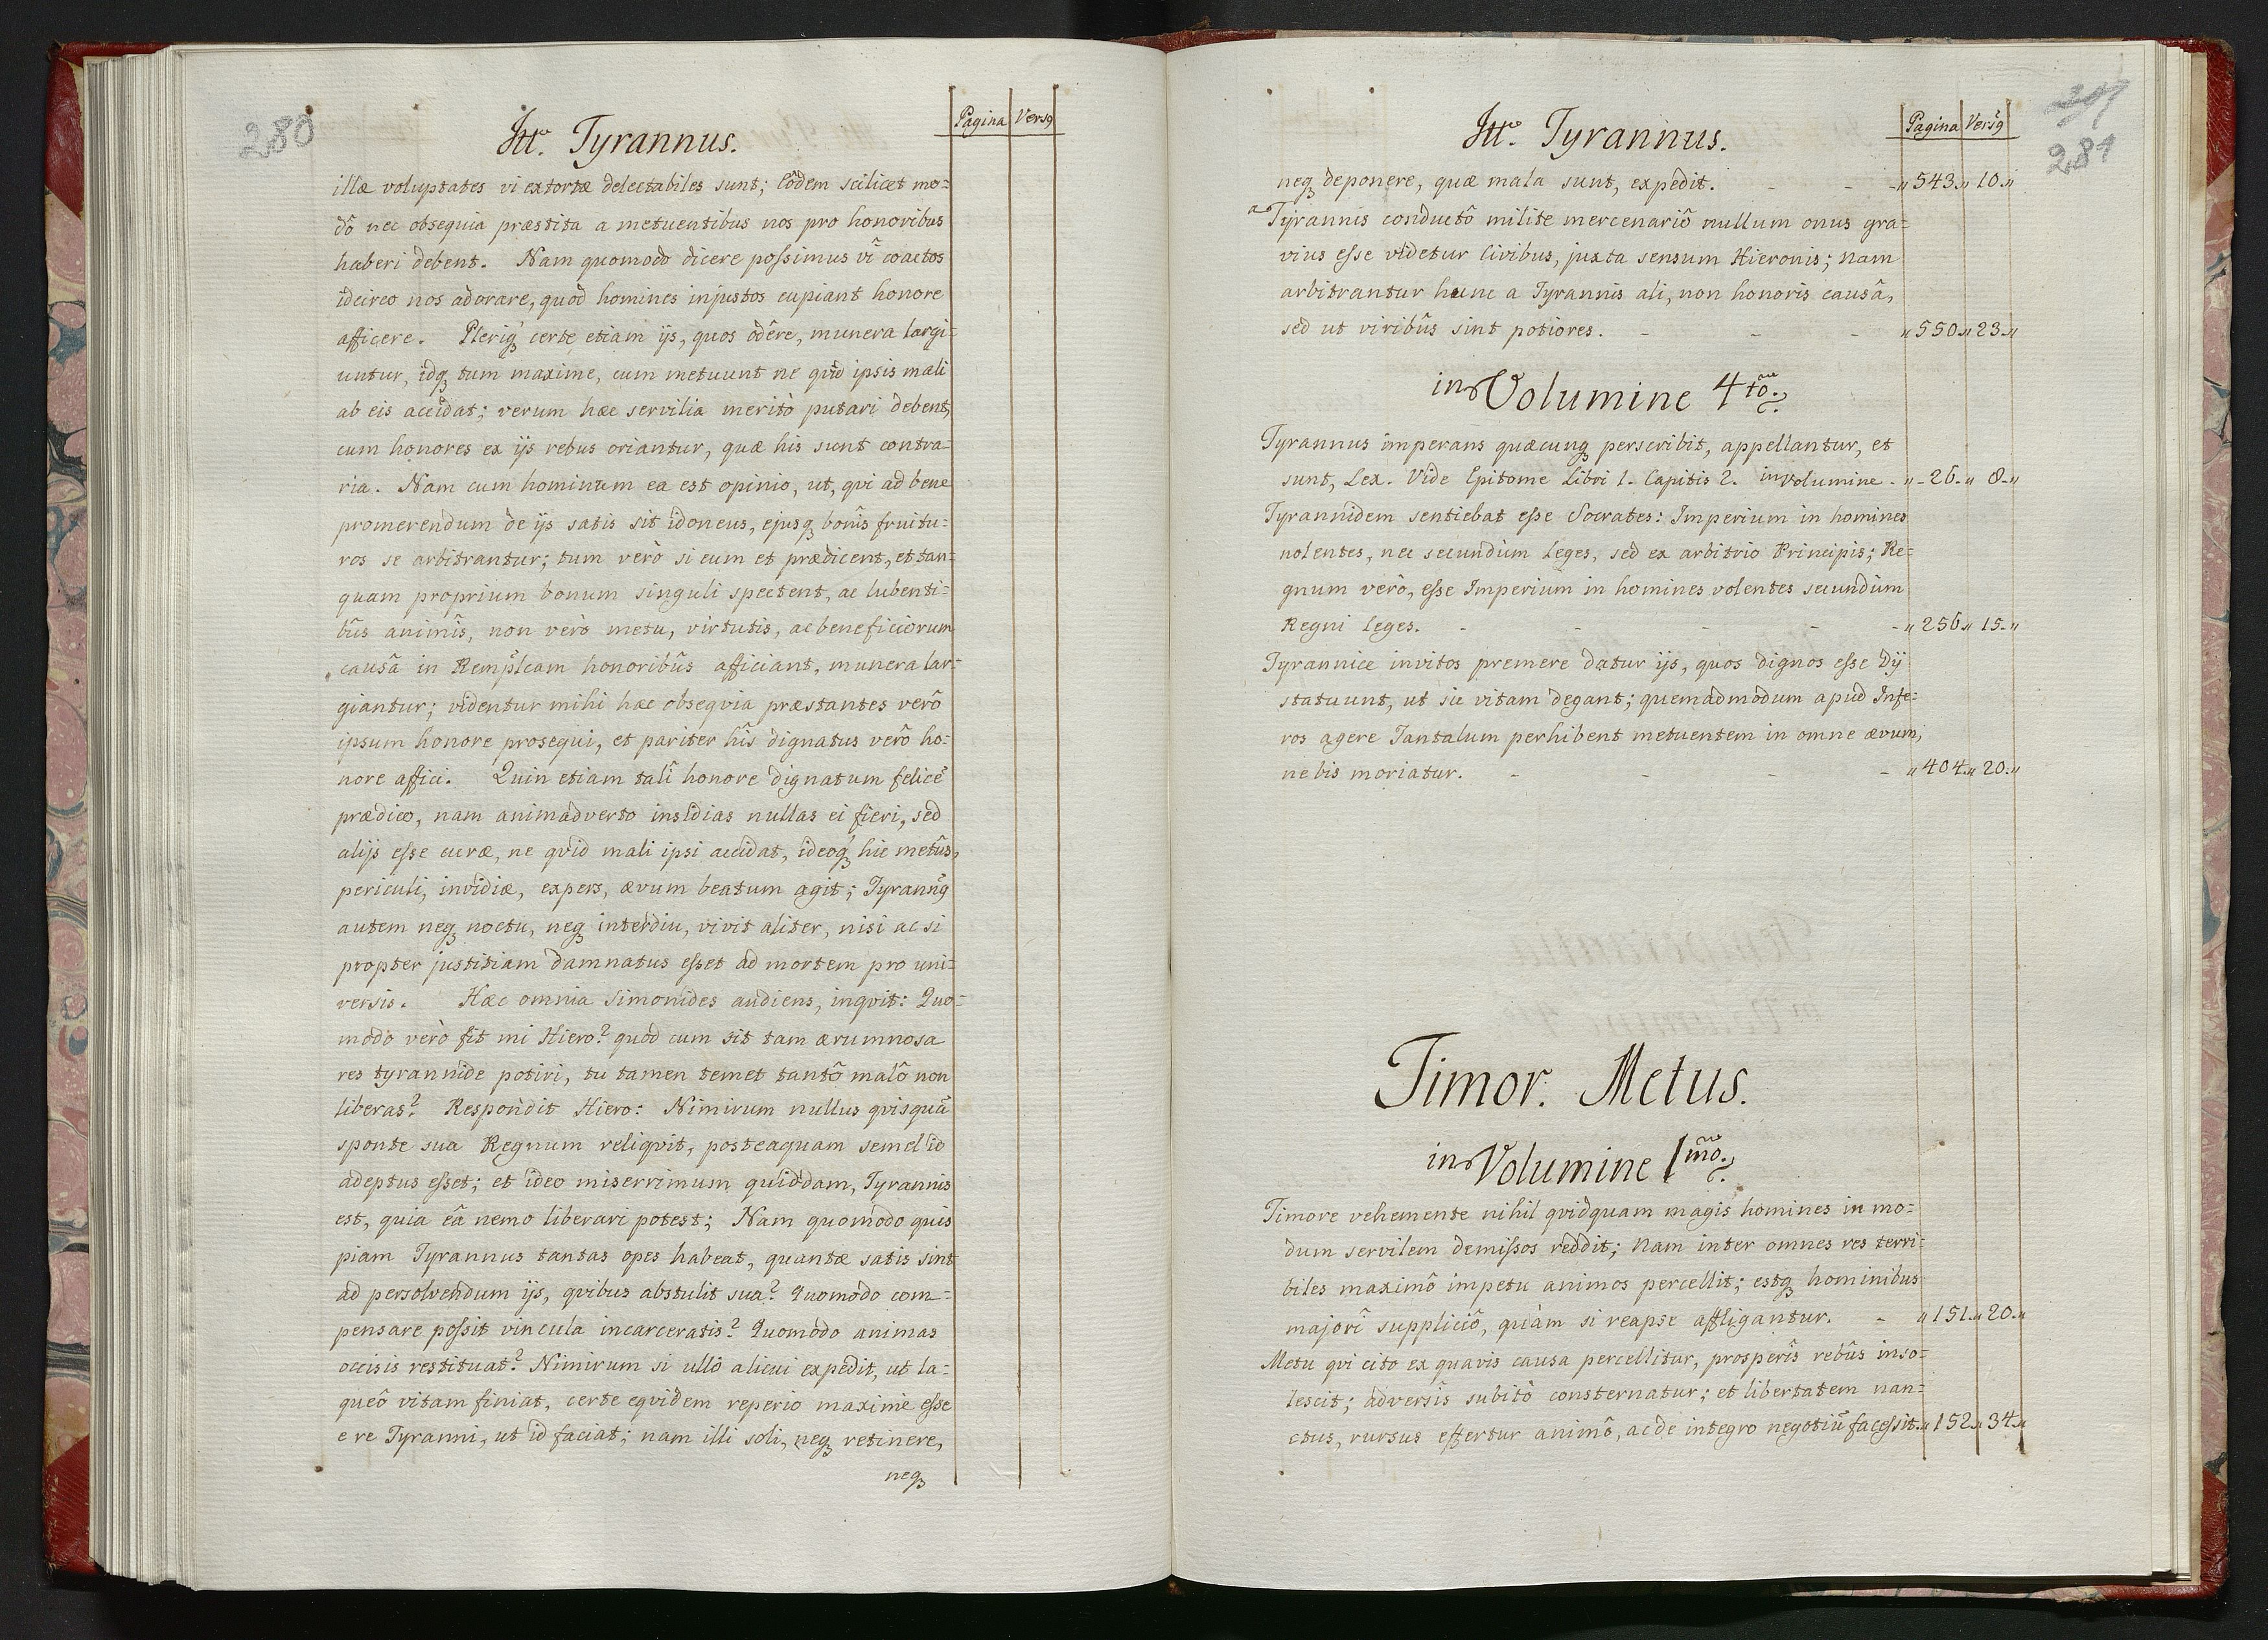 280
Itt. Tyrannus.
Pagina Versꝰ
illæ voluptates vi extortæ delectabiles sunt; eôdem scilicet mo=
dô nec obsequia præstita a metuentibus nos pro honoribus
haberi debent. Nam quomodo dicere poſsimus vî coactos
idcirco nos adorare, quòd homines injustos cupiant honore
afficere. Pleriqꝫ certe etiam ijs, quos ôdêre, munera largi=
untur, idqꝫ tum maxime, cum metuunt ne qvid ipsis mali
ab eis accidat; verum hæc servilia meritò putari debent,
cum honores ex ijs rebus oriantur, quæ his sunt contra=
ria. Nam cum hominum ea est opinio, ut, qvi ad bene
promerendum de ijs satis sit idoneus, ejusqꝫ bonîs fruitu=
ros se arbitrantur; tum verò si eum et prædicent, et tan=
quam proprium bonum singuli spectent, ac lubenti=
bûs animîs, non verò metu, virtutis, ac beneficiorum
causâ in Rempl̃cam honoribûs afficiant, munera lar=
giantur; videntur mihi hæc obseqvia præstantes verô
ipsum honore prosequi, et pariter hîs dignatus verô ho=
nore affici. Quin etiam talî honore dignatum felicẽ
prædico, nam animadverto insidias nullas ei fieri, sed
alijs eſse curæ, ne qvid mali ipsi accidat, ideoqꝫ hic metûs,
periculi, invidiæ, expers, ævum beatum agit; Tyrannꝰ
autem neqꝫ noctu, neqꝫ interdiu, vivit aliter, nisi ac si
propter justitiam damnatus eſset ad mortem pro uni=
versis. Hæc omnia Simonides audiens, inqvit: Quo=
modo verò fit mi Hiero? quòd cum sit tam ærumnosa
res tyrannide potiri, tu tamen temet tantô malô non
liberas? Respondit Hiero: Nimirum nullus qvisquã
sponte sua Regnum reliqvit, posteaquam semel id
adeptus eſset; et ideo miserrimum quiddam, Tyrannis
est, quia eâ nemo liberari potest; Nam quomodo quis
piam Tyrannus tantas opes habeat, quantæ satis sint
ad persolvendum ijs, qvibus abstulit sua? Quomodo com=
pensare poſsit vincula incarceratis? Quomodo animas
occisis restituat? Nimirum si ullô alicui expedit, ut la=
queô vitam finiat, certe eqvidem reperio maxime eſse
e re Tyranni, ut id faciat; nam illi soli, neqꝫ retinere,
neqꝫ
281
Itt. Tyrannus.
Pagina Versꝰ
neqꝫ deponere, quæ mala sunt, expedit. - - - „ 543. „ 10. „
a Tyrannis conductô milite mercenariô nullum onus gra=
vius eſse videtur Civibus, juxta sensum Hieronis; nam
arbitrantur hunc a Tyrannis ali, non honoris causâ,
sed ut viribûs sint potiores. - - - „ 550. „ 23. „
in Volumine 4to.
Tyrannus imperans quæcunqꝫ perscribit, appellantur, et
sunt, Lex. Vide Epitome Libri 1. Capitis 2. in volumine - „ - 26. „ 8. „
Tyrannidem sentiebat eſse Socrates: Imperium in homines
nolentes, nec secundùm Leges, sed ex arbitrio Principis; Re=
gnum verò, eſse Imperium in homines volentes secundùm
Regni Leges. - - - - - „ 256. „ 15. „
Tyrannice invitos premere datur ijs, quos dignos eſse Dij
statuunt, ut sic vitam degant; quemadmodum apud Infe=
ros agere Tantalum perhibent metuentem in omne ævum,
ne bis moriatur. - - - - „ 404. „ 20. „
Timor. Metus.
in Volumine 1mo.
Timore vehemente nihil qvidquam magis homines in mo=
dum servilem demiſsos reddit; nam inter omnes res terri=
biles maximô impetu animos percellit; estqꝫ hominibus
majorî suppliciô, quàm si reapse affligantur. - „ 151. „ 20. „
Metu qvi cito ex quavis causa percellitur, prosperîs rebûs inso=
lescit; adversîs subitò consternatur; et libertatem nan=
ctus, rursus effertur animô, ac de integro negotiũ faceſsit. „ 152. „ 34. „